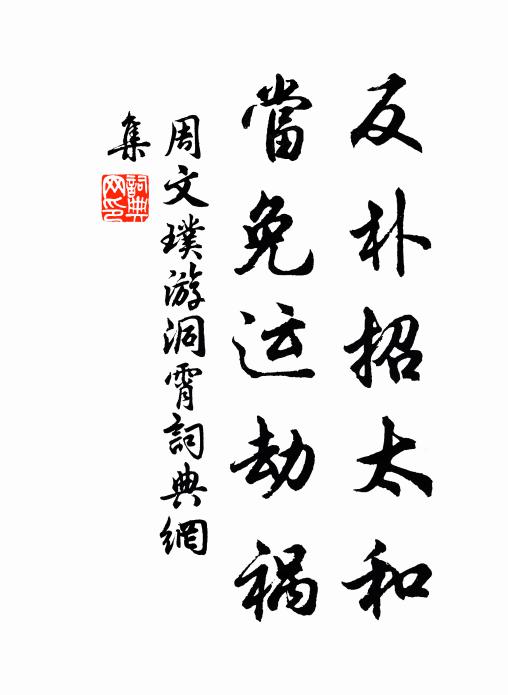 反朴招太和
當免运劫祸
周文璞游洞霄詞典網
集
詞典
网印